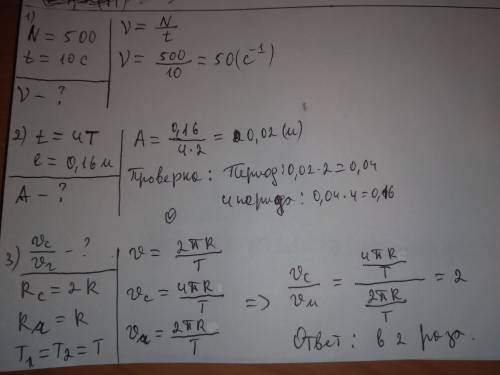 1)
N = 500
t = 10 c
ν - ?
ν = N/t
ν = 500/10 = 50 (c⁻¹)
2) t = 4T
l = 0,16 м
A - ?
A = 0,16/4·2 = 0,02 (м)
Проверка: Период: 0,02·2 = 0,04
4 периода: 0,04·4 = 0,16
3) vc/vг - ?
Rc = 2R
Rд = R
T₁ = T₂ = T
v = 2πR/T
vc = 4πR/T
vд = 2πR/T
=> vc/vм = 4πR/T / 2πR/T = 2
Ответ: в 2 роза.